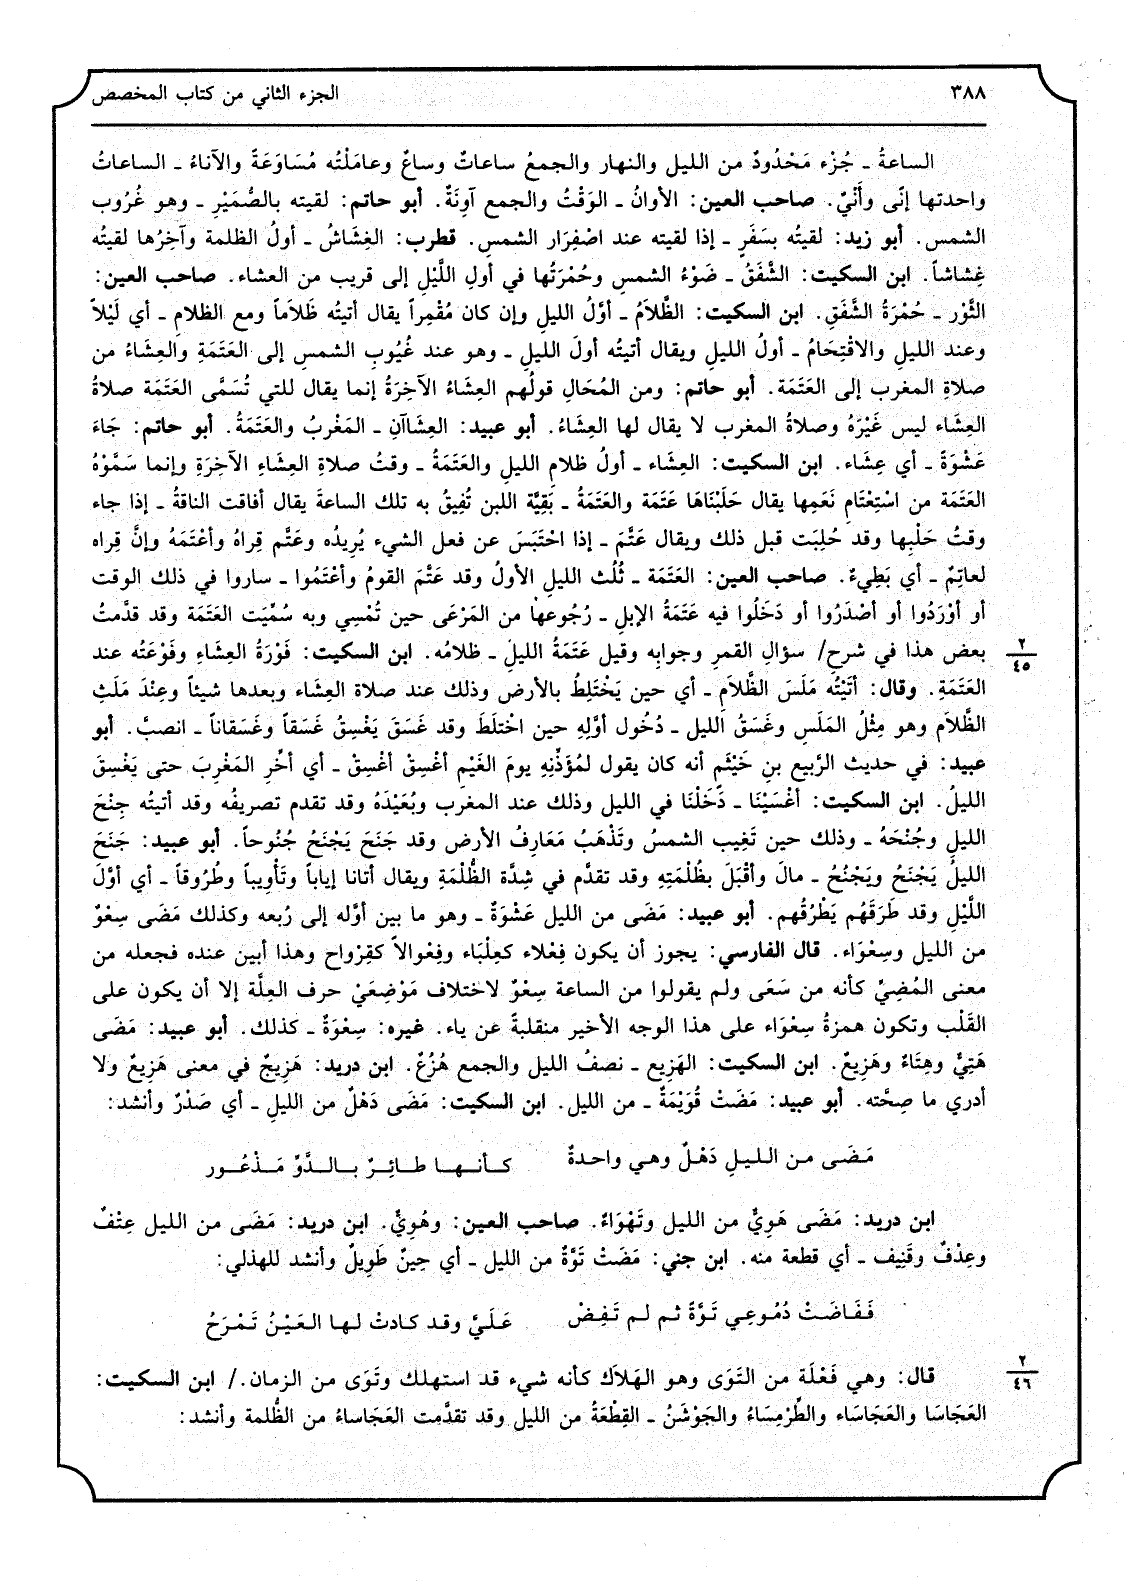 ٣٨٨ الجزء الثاني من كتاب المخصص
الساعةُ ـ جُزْء مَحْدُودٌ من الليل والنهار والجمعُ ساعاتٌ وساعٌ وعامَلْتُه مُسَاوَعَةً والآناءُ ـ الساعاتُ
واحدتها إنَّى وأَنْيٌ. صاحب العين: الأوانُ ـ الوَقْتُ والجمع آوِنَةٌ. أبو حاتم: لقيته بالضُّمَيْرِ ـ وهو غُرُوب
الشمس. أبو زيد: لقيتُه بسَفَرٍ ـ إذا لقيته عند اصْفِرَار الشمسِ. قطرب: الغِشَاشُ ـ أولُ الظلمة وآخِرُها لقيتُه
غِشاشاً. ابن السكيت: الشَّفَقُ ـ ضَوْءُ الشمسِ وحُمْرَتُها في أولِ اللَّيْلِ إلى قريب من العشاء. صاحب العين:
الثَّوْر ـ حُمْرَةُ الشَّفَقِ. ابن السكيت: الظَّلاَمُ ـ أوَّلُ الليلِ وإن كان مُقْمِراً يقال أتيتُه ظَلاَماً ومع الظلامِ ـ أي لَيْلاً
وعند الليلِ والاقْتِحَامُ ـ أولُ الليلِ ويقال أتيتُه أولَ الليلِ ـ وهو عند غُيُوبِ الشمسِ إلى العَتَمَةِ والعِشَاءُ من
صلاةِ المغرب إلى العَتَمَة. أبو حاتم: ومن المُحَالِ قولُهم العِشَاءُ الآخِرَةُ إنما يقال للتي تُسَمَّى العَتَمَة صلاةُ
العِشَاء ليس غَيْرُهُ وصلاةُ المغرب لا يقال لها العِشَاءُ. أبو عبيد: العِشَاآنِ ـ المَغْرِبُ والعَتَمَةُ. أبو حاتم: جَاءَ
عَشْوَةً ـ أي عِشَاء. ابن السكيت: العِشَاء ـ أولُ ظلامِ الليلِ والعَتَمَةُ ـ وقتُ صلاةِ العِشَاءِ الآخِرَةِ وإنما سَمَّوْهُ
العَتَمَة من اسْتِعْتَامِ نَعَمِها يقال حَلَبْنَاهَا عَتَمَة والعَتَمَةُ ـ بَقِيَّة اللبن تُفِيقُ به تلك الساعةَ يقال أفاقت الناقةُ ـ إذا جاء
وقتُ حَلْبِها وقد حُلِبَت قبل ذلك ويقال عَتَّمَ ـ إذا احْتَبَسَ عن فعل الشيء يُرِيدُه وعَتَّم قِراهُ وأعْتَمَهُ وإنَّ قِراه
لعاتِمٌ ـ أي بَطِيءٌ. صاحب العين: العَتَمَة ـ ثُلُث الليلِ الأولُ وقد عَتْمَ القومُ وأعْتَمُوا ـ ساروا في ذلك الوقت
أو أوْرَدُوا أو أصْدَرُوا أو دَخَلُوا فيه عَتَمَةُ الإبلِ ـ رُجُوعها من المَرْعَى حين تُمْسِي وبه سُمِّيَت العَتَمَة وقد قدَّمتُ
٢ / ٤٥ بعض هذا في شرح/ سؤالِ القمرِ وجوابِه وقيل عَتَمَةُ الليلِ ـ ظلامُه. ابن السكيت: فَوْرَةُ العِشَاءِ وفَوْعَتُه عند
العَتَمَةِ. وقال: أتَيْتُه مَلَسَ الظَّلاَمِ ـ أي حين يَخْتَلِطُ بالأرض وذلك عند صلاة العِشَاء وبعدها شيئاً وعِنْدَ مَلَثِ
الظَّلاَم وهو مِثْلُ المَلَسِ وغَسَقُ الليل ـ دُخُول أوَّلِهِ حين اخْتلَطَ وقد غَسَقَ يَغْسِقُ غَسَقاً وغَسَقاناً ـ انصبَّ. أبو
عبيد: في حديث الرَّبيع بنِ خَيْثَم أنه كان يقول لمُؤَذِّنِهِ يومَ الغَيْمِ أغْسِقْ أغْسِقْ ـ أي أخِّرِ المَغْرِبَ حتى يَغْسِقَ
الليلُ. ابن السكيت: أغْسَيْنَا ـ دَخَلْنَا في الليل وذلك عند المغرب وبُعَيْدَهُ وقد تقدم تصريفُه وقد أتيتُه جِنْحَ
الليلِ وجُنْحَهُ ـ وذلك حين تَغِيب الشمسُ وتَذْهَبُ مَعَارِفُ الأرض وقد جَنَحَ يَجْنَحُ جُنُوحاً. أبو عبيد: جَنَحَ
الليلُ يَجْنَحُ ويَجْنُحُ ـ مالَ وأقْبَلَ بظُلْمَتِهِ وقد تقدَّم في شِدَّة الظُّلْمَةِ ويقال أتانا إياباً وتَأْوِيباً وطُرُوقاً ـ أي أوَّلَ
اللَّيْلِ وقد طَرَقَهُم يَطْرُقُهم. أبو عبيد: مَضَى من الليل عَشْوَةٌ ـ وهو ما بين أوَّله إلى رُبعه وكذلك مَضَى سِعْوٌ
من الليل وسِعْوَاء. قال الفارسي: يجوز أن يكون فِعْلاء كعِلْبَاء وفِعْوالاً كقِرْواح وهذا أبين عنده فجعله من
معنى المُضِيِّ كأنه من سَعَى ولم يقولوا من الساعة سِعْوٌ لاختلاف مَوْضِعَيْ حرف العِلَّة إلا أن يكون على
القَلْب وتكون همزةُ سِعْوَاء على هذا الوجه الأخير منقلبةً عن ياء. غيره: سِعْوَةٌ ـ كذلك. أبو عبيد: مَضَى
هَتِيٌّ وهِتَاءٌ وهَزِيعٌ. ابن السكيت: الهَزِيع ـ نصفُ الليل والجمع هُزُعٌ. ابن دريد: هَزِيجٌ في معنى هَزِيعٌ ولا
أدري ما صِحَّته. أبو عبيد: مَضَتْ قُوَيْمَةٌ ـ من الليل. ابن السكيت: مَضَى دَهْلٌ من الليلِ ـ أي صَدْرٌ وأنشد:
مَضَى من الليلِ دَهْلٌ وهي واحدةٌ كأنها طائِرٌ بالدَّوِّ مَذْعُور
ابن دريد: مَضَى هَوِيٌّ من الليل وتَهْوَاءٌ. صاحب العين: وهُوِيٌّ. ابن دريد: مَضَى من الليل عِتْفٌ
وعِدْفٌ وقَنِيف ـ أي قطعة منه. ابن جني: مَضَتْ تَوَّةٌ من الليل ـ أي حِينٌ طَوِيلٌ وأنشد للهذلي:
فَفَاضَتْ دُمُوعِي تَوَّةً ثم لم تَفِضْ عَلَيَّ وقد كادتْ لها العَيْنُ تَمْرَحُ
٢ / ٤٦ قال: وهي فَعْلَة من التَوَى وهو الهَلاَك كأنه شيء قد استهلك وتَوَى من الزمان./ ابن السكيت:
العَجَاسَا والعَجَاسَاء والطِّرْمِسَاءُ والجَوْشَنُ ـ القِطْعَةُ من الليل وقد تقدَّمت العَجَاساءُ من الظُّلمة وأنشد: